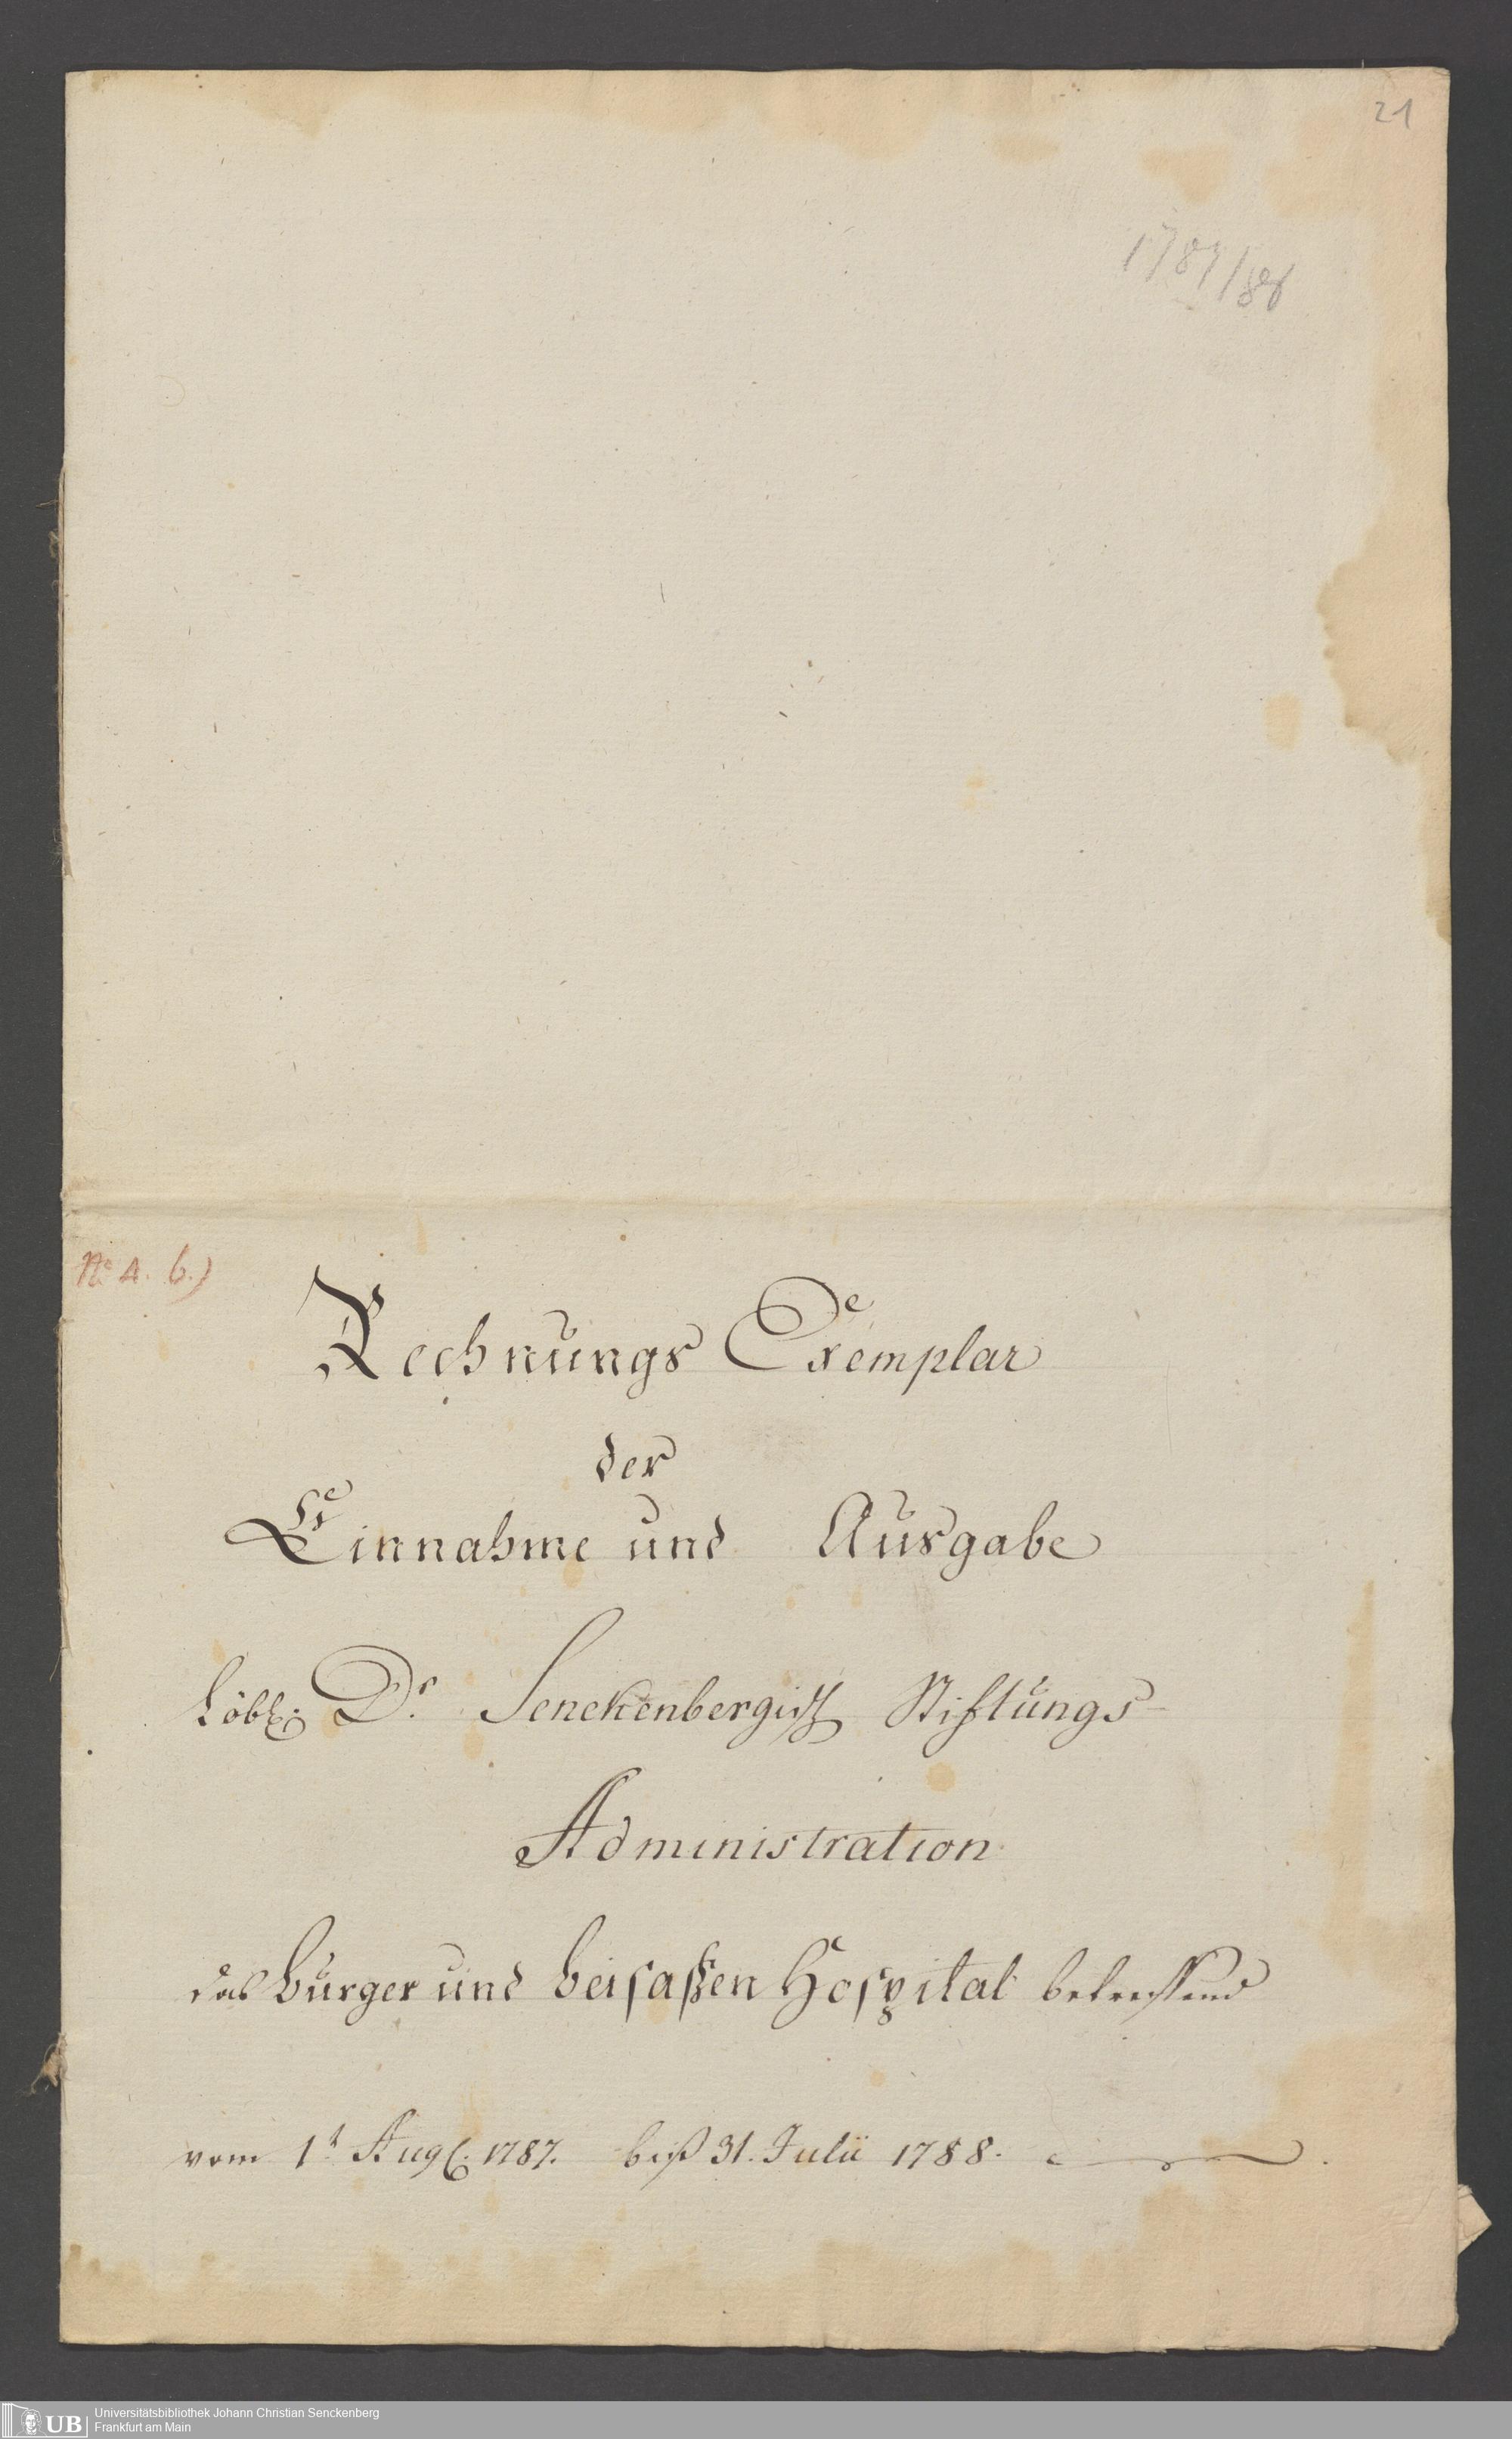 21
1787/88
No 4. b.)
Rechnungs Exemplar
der
Einnahme und Ausgabe
Löbl. Dr. Senckenbergisch Stiftungs-
Administration
das Bürger und Beisaßen Hospital betreffend
vom 1t Aug. 1787. biß 31. Julii 1788.
UB Universitätsbibliothek Johann Christian Senckenberg
Frankfurt am Main